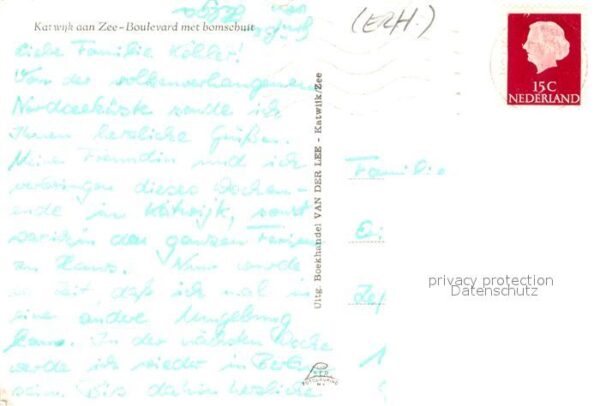 Katwijk aan Zee - Boulevard met bomschuit
(EZH.)
15 C
NEDERLAND
liebe Familie Köhler!
Von der wolkenverhangenen
Nordseeküste sende ich
Ihnen herzliche Grüße.
Meine Freundin und ich
verbringen dieses Wochen-
ende in Katwijk, sonst
war ich in den ganzen Ferien
zu Haus. Nun wurde
es Zeit, daß ich mal in
eine andere Umgebung
kam. In der nächsten Woche
werde ich wieder in
sein. Bis dahin herzliche
Uitg. Boekhandel VAN DER LEE - Katwijk/Zee
Familie
privacy protection
Datenschutz